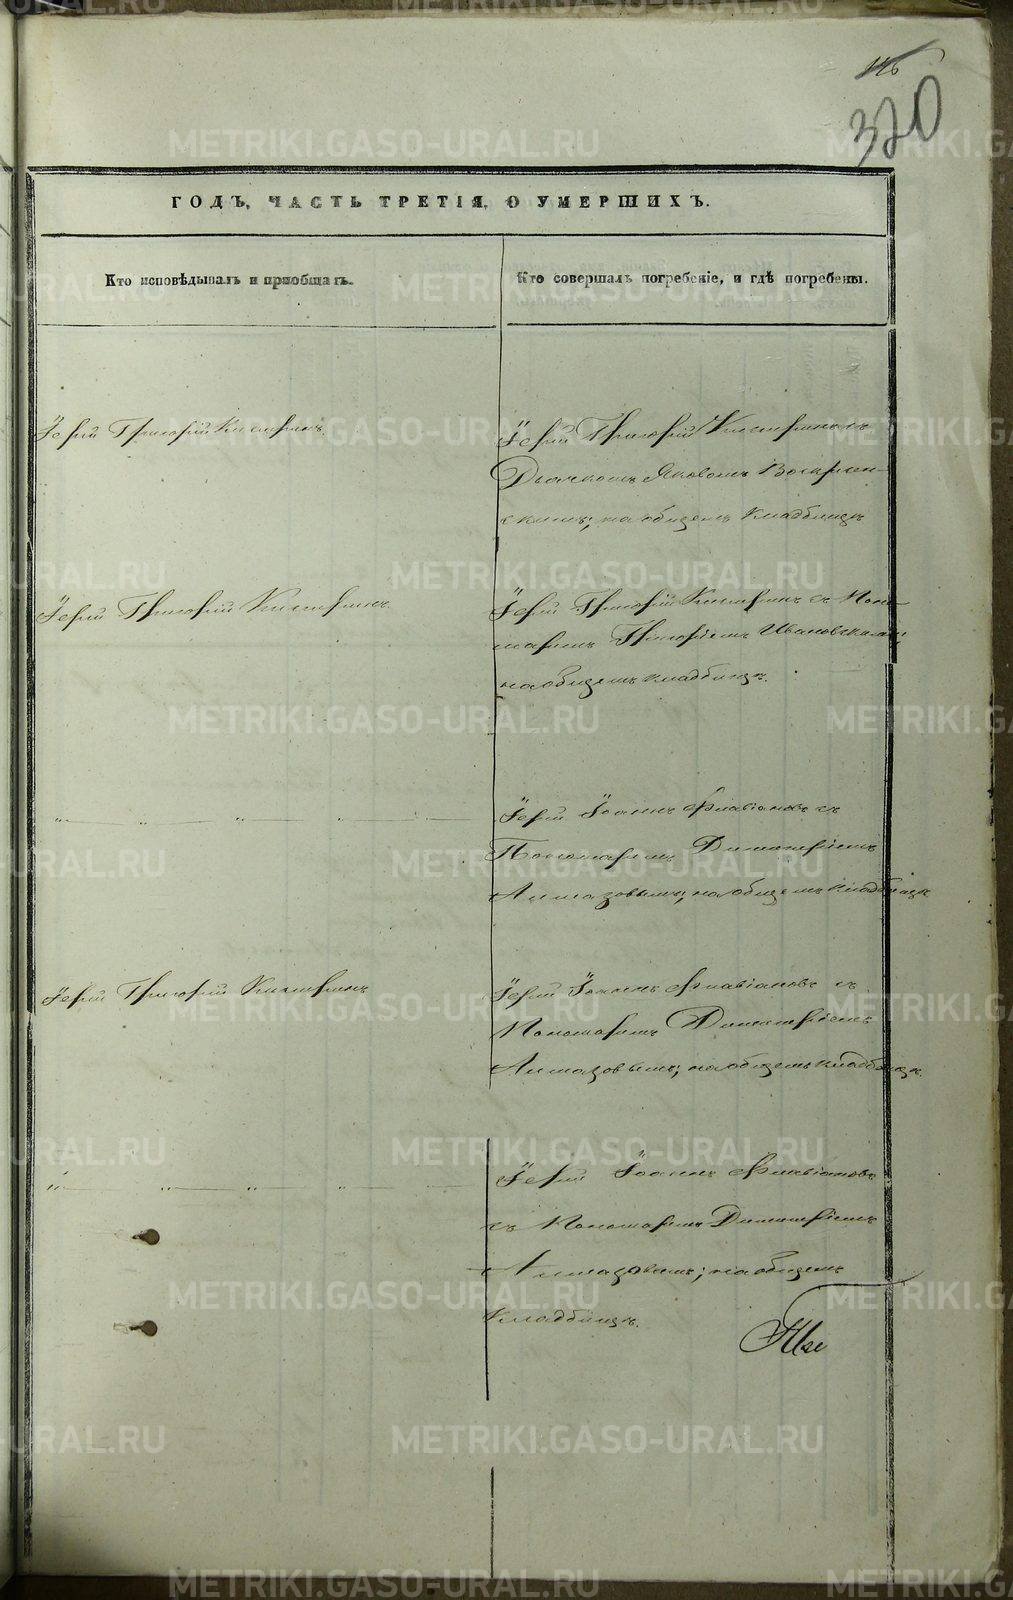 116
320
ГОДЪ, ЧАСТЬ ТРЕТІЯ, О УМЕРШИХЪ.
Кто исповѣдывалъ и пріобщалъ.
Кто совершалъ погребеніе, и гдѣ погребены.
Іерей Григорій
Іерей Григорій
Дьячкомъ Яковомъ Воскресен-
скимъ; на общемъ кладбищѣ
Іерей Григорій
Іерей Григорій съ Поно-
маремъ Григоріемъ Ивановскимъ;
на общемъ кладбищѣ.
Іерей Іоаннъ Флавіановъ съ
Пономаремъ Димитріемъ
Алмазовымъ; на общемъ кладбищѣ
Іерей Григорій
Іерей Іоаннъ Флавіановъ съ
Пономаремъ Димитріемъ
Алмазовымъ; на общемъ кладбищѣ.
Іерей Іоаннъ Флавіановъ
съ Пономаремъ Димитріемъ
Алмазовымъ; на общемъ
кладбищѣ.
METRIKI.GASO-URAL.RU